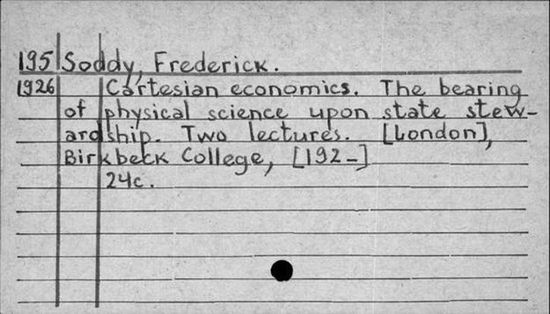 195 Soddy, Frederick.
1926 Cartesian economics. The bearing
of physical science upon state stew-
ardship. Two lectures. [London],
Birkbeck College, [192-]
24c.